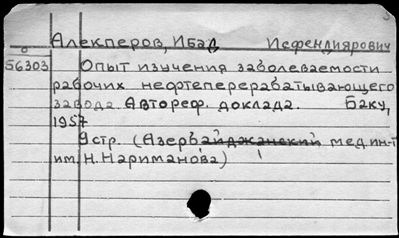 Алекперов, Ибад Исфендиярович
56303 Опыт изучения заболеваемости
рабочих нефтеперерабатывающего
завода. Автореф. доклада. Баку,
1957
9 стр. (Азербайджанский мед.ин-т
им. Н. Нариманова)